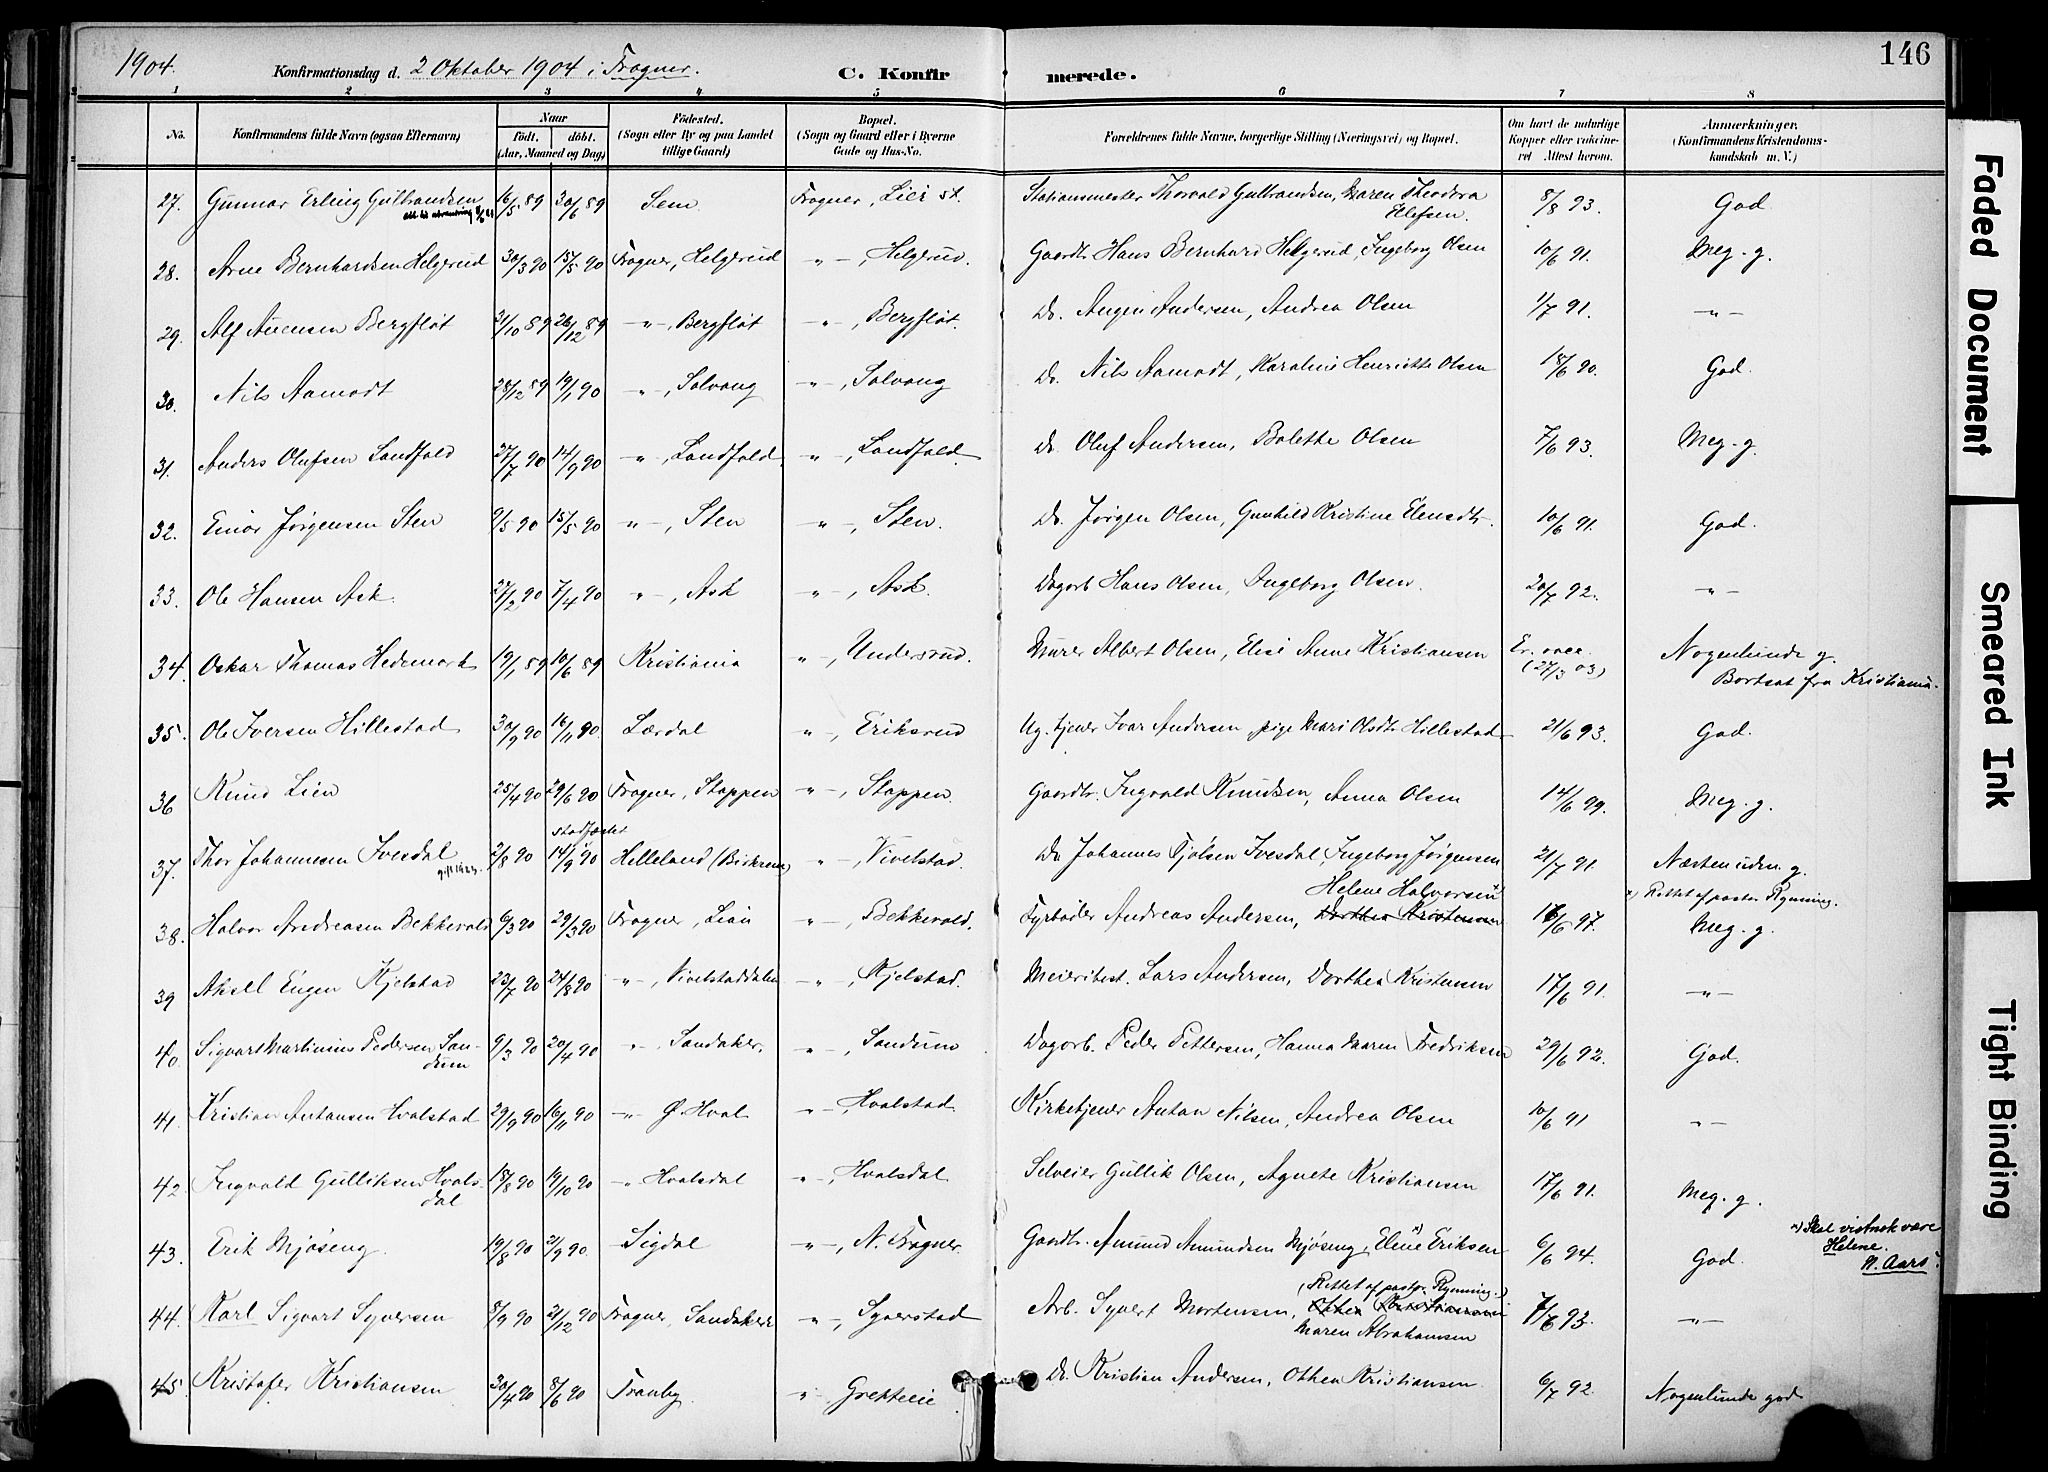 1904. Konfirmationsdag d. 2 Oktober 1904 i Frogner. C. Konfirmerede. 146
1 2 3 4 5 6 7 8
No. Konfirmandens fulde Navn (ogsaa Efternavn) Naar født. døbt. (Aar, Maaned og Dag) Fødested. (Sogn eller By og paa Landet tillige Gaard) Bopæl. (Sogn og Gaard eller i Byerne Gade og Hus-No. Forældrenes fulde Navne, borgerlige Stilling (Næringsvei) og Bopæl. Om havt de naturlige Kopper eller vakcineret Attest herom. Anmærkninger. (Konfirmandens Kristendomskundskab m. V.)
27. Gunnar Erling Gulbrandsen 16/5 89 30/6 89 Sem Frogner, Lier st. Stationsmester Thorvald Gulbrandsen, Maren Theodora Elefsen. 8/8 93. God.
28. Arne Bernhardsen Helgerud 30/3 90 15/5 90 Frogner, Helgerud -"-, Helgerud. Gaardbr. Hans Bernhard Helgerud, Ingeborg Olsen 10/6 91. Meg. g.
29. Alf Auensen Bergfløt 31/10 89 26/12 89 -"-, Bergfløt -"-, Bergfløt. Do. Augen Andersen, Andrea Olsen 1/7 91. -"-
30. Nils Aamodt 28/12 89 19/1 90 -"-, Solvang -"-, Solvang Do. Nils Aamodt, Karoline Henriette Olsen 18/6 90. God.
31. Anders Olufsen Landfald 27/7 90 14/9 90 -"-, Landfald. -"-, Landfald. Do. Oluf Andersen, Bolette Olsen 7/6 93. Meg. g.
32. Einar Jørgensen Sten 9/5 90 15/5 90 -"-, Sten -"-, Sten. Do. Jørgen Olsen, Gunhild Kristine Elensdtr. 10/6 91. God.
33. Ole Hansen Ask. 27/2 90 7/4 90 -"-, Ask -"-, Ask. Dagarb. Hans Olsen, Ingeborg Olsen. 20/7 92. -"-
34. Oskar Thomas Hedemark 19/1 89 10/6 89 Kristiania -"-, Undersrud. Murer Albert Olsen, Elise Anne Kristiansen Er. vacc. (27/3 03) Nogenlunde g. Bortsat fra Kristiania.
35. Ole Iversen Hillestad 30/9 90 16/11 90. Lærdal -"-, Eriksrud Ug. tjener Ivar Andersen, pige Mari Olsdtr. Hillestad 21/6 93. God.
36 Knud Lien 25/4 90 29/6 90 Frogner, Stoppen -"-, Stoppen. Gaardbr. Ingvald Knudsen, Anna Olsen 14/6 99. Meg. g.
37. Thor Johannesen Ivesdal 2/8 90 stadfæstet 14/9 90 Helleland (Birkrem) -"-, Vivelstad. Do Johannes Tjølsen Ivesdal, Ingeborg Jørgensen 21/7 91. Næsten uden g.
38. Halvor Andreasen Bekkevold 6/3 90 29/3 90 Frogner, Lian -"-, Bekkevold. Fyrbøder Andreas Andersen, Helene Halvorsen x) Dorthea Kristensen 16/6 97. x) Rettet af pastor Rynning. Meg. g.
39 Aksel Eugen Kjelstad 23/7 90 24/8 90 -"-, Vivelstaddalen -"-, Kjelstad. Meieribest. Lars Andersen, Dorthea Kristensen 17/6 91. -"-
40. Sigvart Martinius Pedersen Sandum 9/3 90 20/4 90 -"-, Sandaker. -"-, Sandum Dagarb. Peder Pettersen, Hanna Maren Fredriksen 29/6 92. God.
41. Kristian Antonsen Hvalstad 29/9 90 16/11 90 -"- Ø. Hval -"-, Hvalstad. Kirketjener Anton Nilsen, Andrea Olsen 10/6 91 -"-
42. Ingvald Gulliksen Hvalsdal 18/8 90 19/10 90 -"- Hvalsdal -"-, Hvalsdal Selveier Gullik Olsen, Agnete Kristiansen 17/6 91. Meg. g.
43. Erik Mjøseng. 19/8 90 21/9 90. Sigdal -"-, N. Frogner. Gaardbr. Amund Amundsen Mjøseng, Eline x) Eriksen 6/6 94. God. x) Skal vistnok være Helene. N. Aars.
44. Karl Sigvart Syversen 8/9 90 21/12 90 Frogner, Sandaker -"-, Syverstad Arb. Syvert Mortensen, (Rettet af pastor Rynning.) Othea Kristiansen Maren Abrahamsen 7/6 93. -"-
45 Kristofer Kristiansen 30/4 90 8/6 90 Tranby. -"- Grøtteeie Do. Kristian Andersen, Othea Kristiansen. 6/7 92. Nogenlunde god
Faded Document
Smeared Ink
Tight Binding